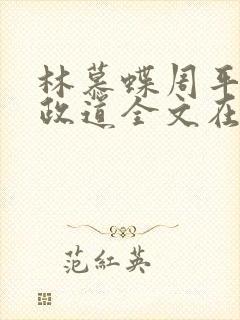 林慕蝶周平
政道全文在
范紅英